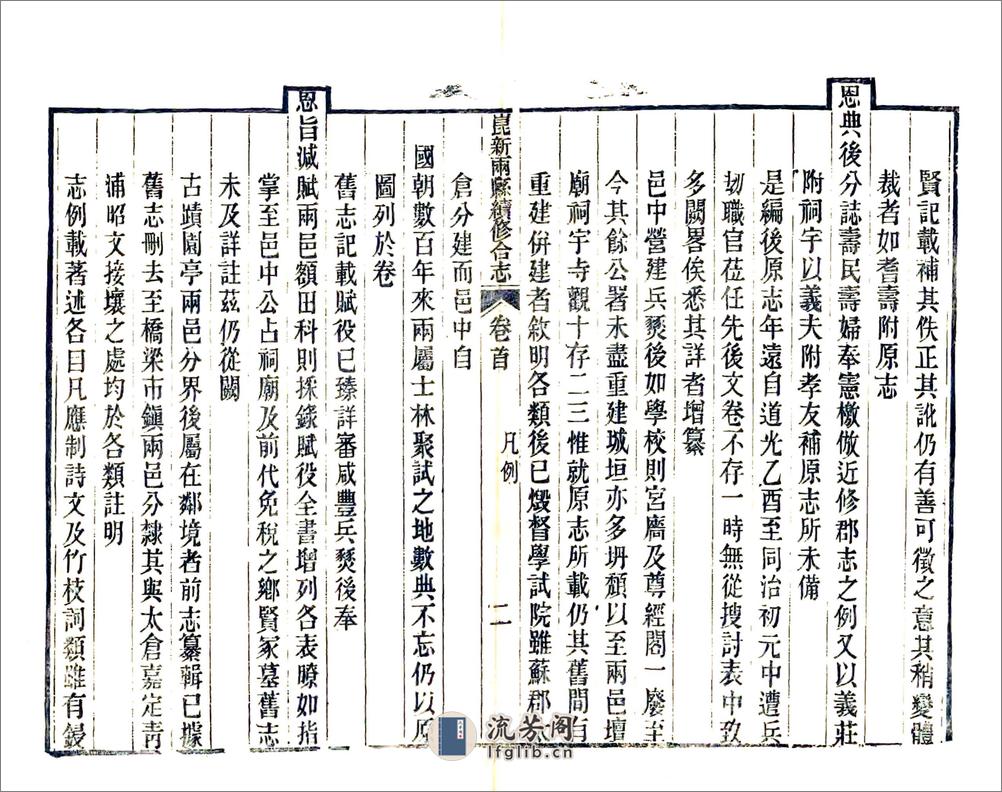 賢記載補其佚正其訛仍有善可徵之意其稍變體
裁者如耆壽附原志
恩典後分誌壽民壽婦奉憲檄倣近修郡志之例又以義莊
附祠宇以義夫附孝友補原志所未備
是編後原志年遠自道光乙酉至同治初元中遭兵
刼職官莅任先後文卷不存一時無從搜討表中致
多闕畧俟悉其詳者增纂
邑中營建兵燹後如學校則宮廧及尊經閣一廢至
今其餘公署未盡重建城垣亦多坍頹以至兩邑壇
廟祠宇寺觀十存二三惟就原志所載仍其舊間有
重建併建者敘明各類後已燬督學試院雖蘇郡太
崑新兩縣續修合志
卷首
凡例
二
倉分建而邑中自
國朝數百年來兩屬士林聚試之地數典不忘仍以原
圖列於卷
舊志記載賦役已臻詳審咸豐兵燹後奉
恩旨減賦兩邑額田科則採錄賦役全書增列各表瞭如指
掌至邑中公占祠廟及前代免稅之鄉賢冢墓舊志
未及詳註茲仍從闕
古蹟園亭兩邑分界後屬在鄰境者前志纂輯已據
舊志刪去至橋梁市鎭兩邑分隸其與太倉嘉定靑
浦昭文接壤之處均於各類註明
志例載著述各目凡應制詩文及竹枝詞類雖有鋟
流芳阁
lfglib.cn